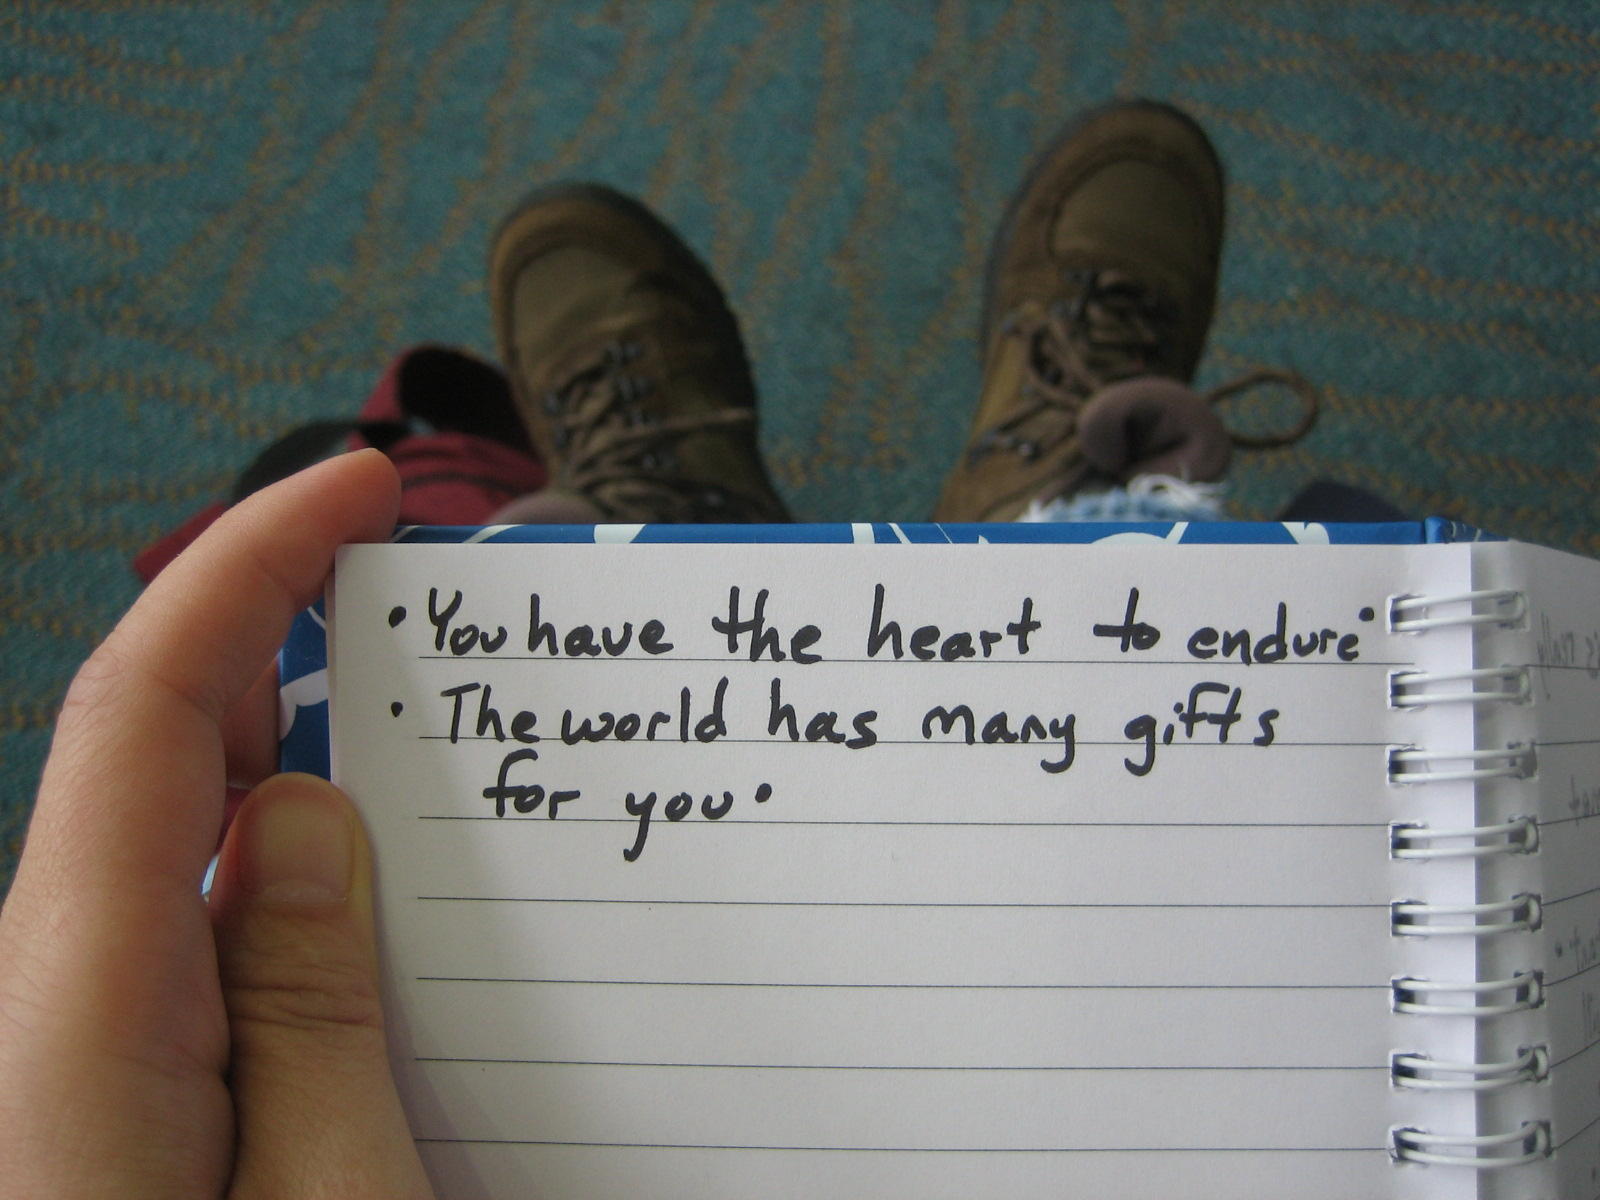 • You have the heart to endure •
• The world has many gifts
for you •